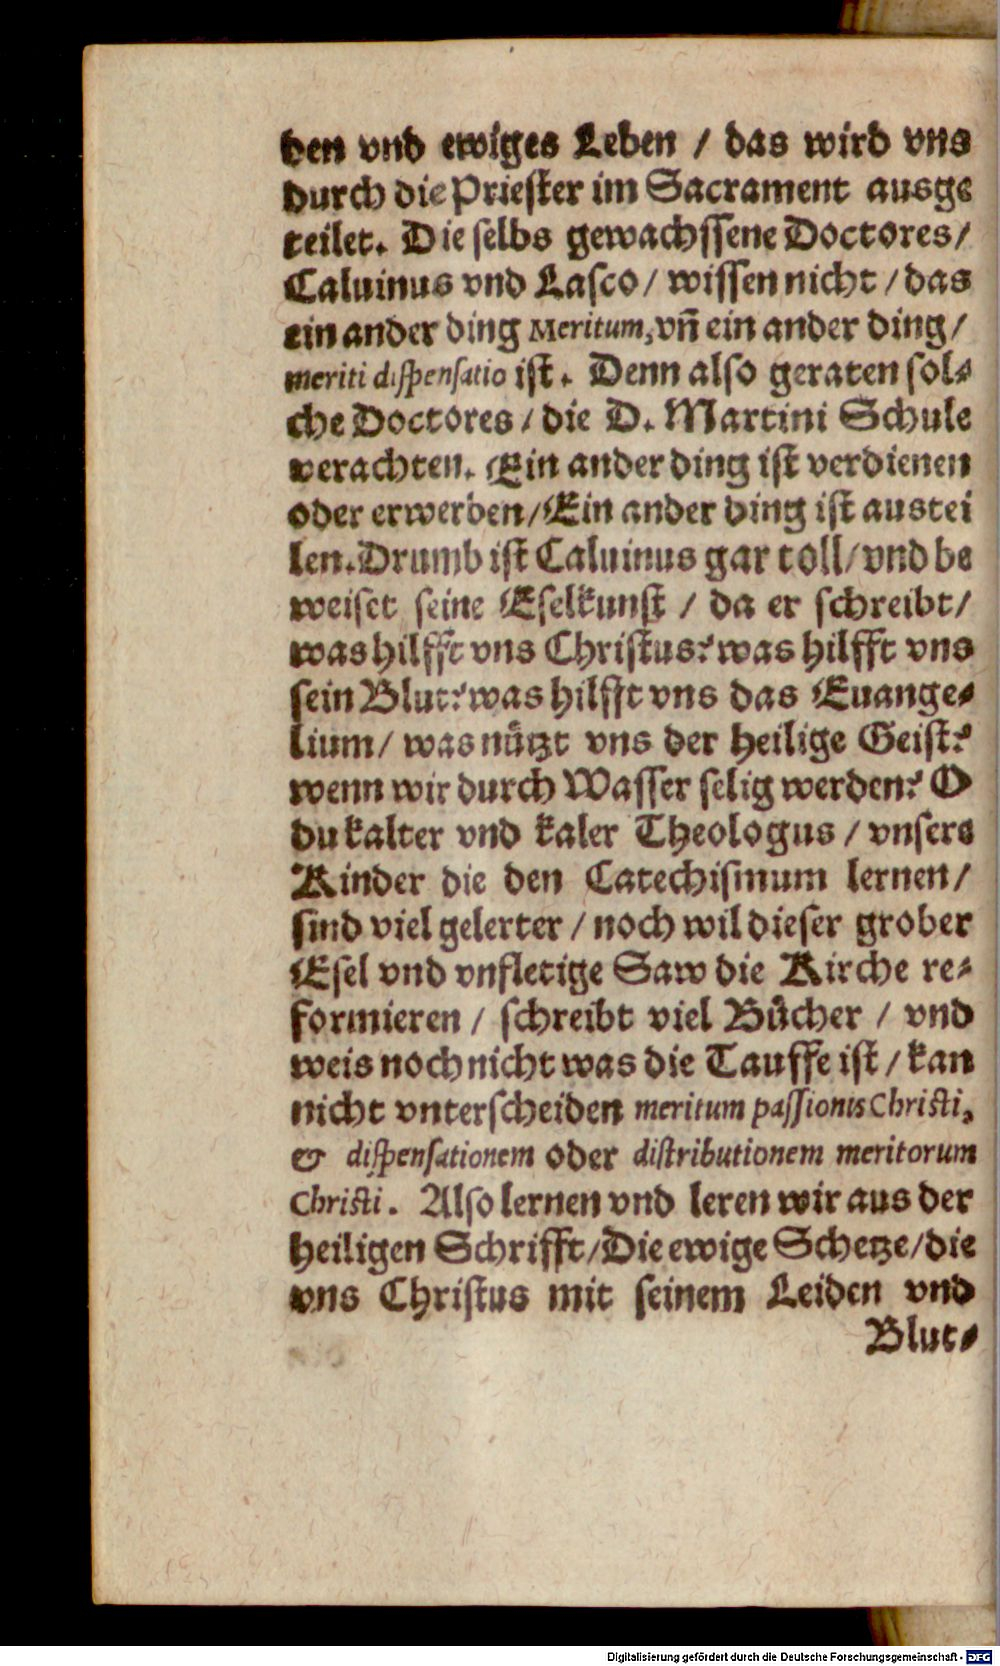 den vnd ewiges Leben / das wird vns
durch die Priester im Sacrament ausge
teilet. Die selbs gewachssene Doctores/
Caluinus vnd Lasco/ wissen nicht / das
ein ander ding Meritum, vñ ein ander ding/
meriti dispensatio ist. Denn also geraten sol-
che Doctores / die D. Martini Schule
verachten. Ein ander ding ist verdienen
oder erwerben/Ein ander ding ist austei
len. Drumb ist Caluinus gar toll/vnd be
weiset seine Eselkunst / da er schreibt/
was hilfft vns Christus? was hilfft vns
sein Blut? was hilfft vns das Euange-
lium/ was nützt vns der heilige Geist?
wenn wir durch Wasser selig werden? O
du kalter vnd kaler Theologus / vnsere
Kinder die den Catechismum lernen/
sind viel gelerter / noch wil dieser grober
Esel vnd vnfletige Saw die Kirche re-
formieren / schreibt viel Bücher / vnd
weis noch nicht was die Tauffe ist / kan
nicht vnterscheiden meritum passionis Christi,
& dispensationem oder distributionem meritorum
Christi. Also lernen vnd leren wir aus der
heiligen Schrifft/Die ewige Schetze/die
vns Christus mit seinem Leiden vnd
Blut-
Digitalisierung gefördert durch die Deutsche Forschungsgemeinschaft - DFG